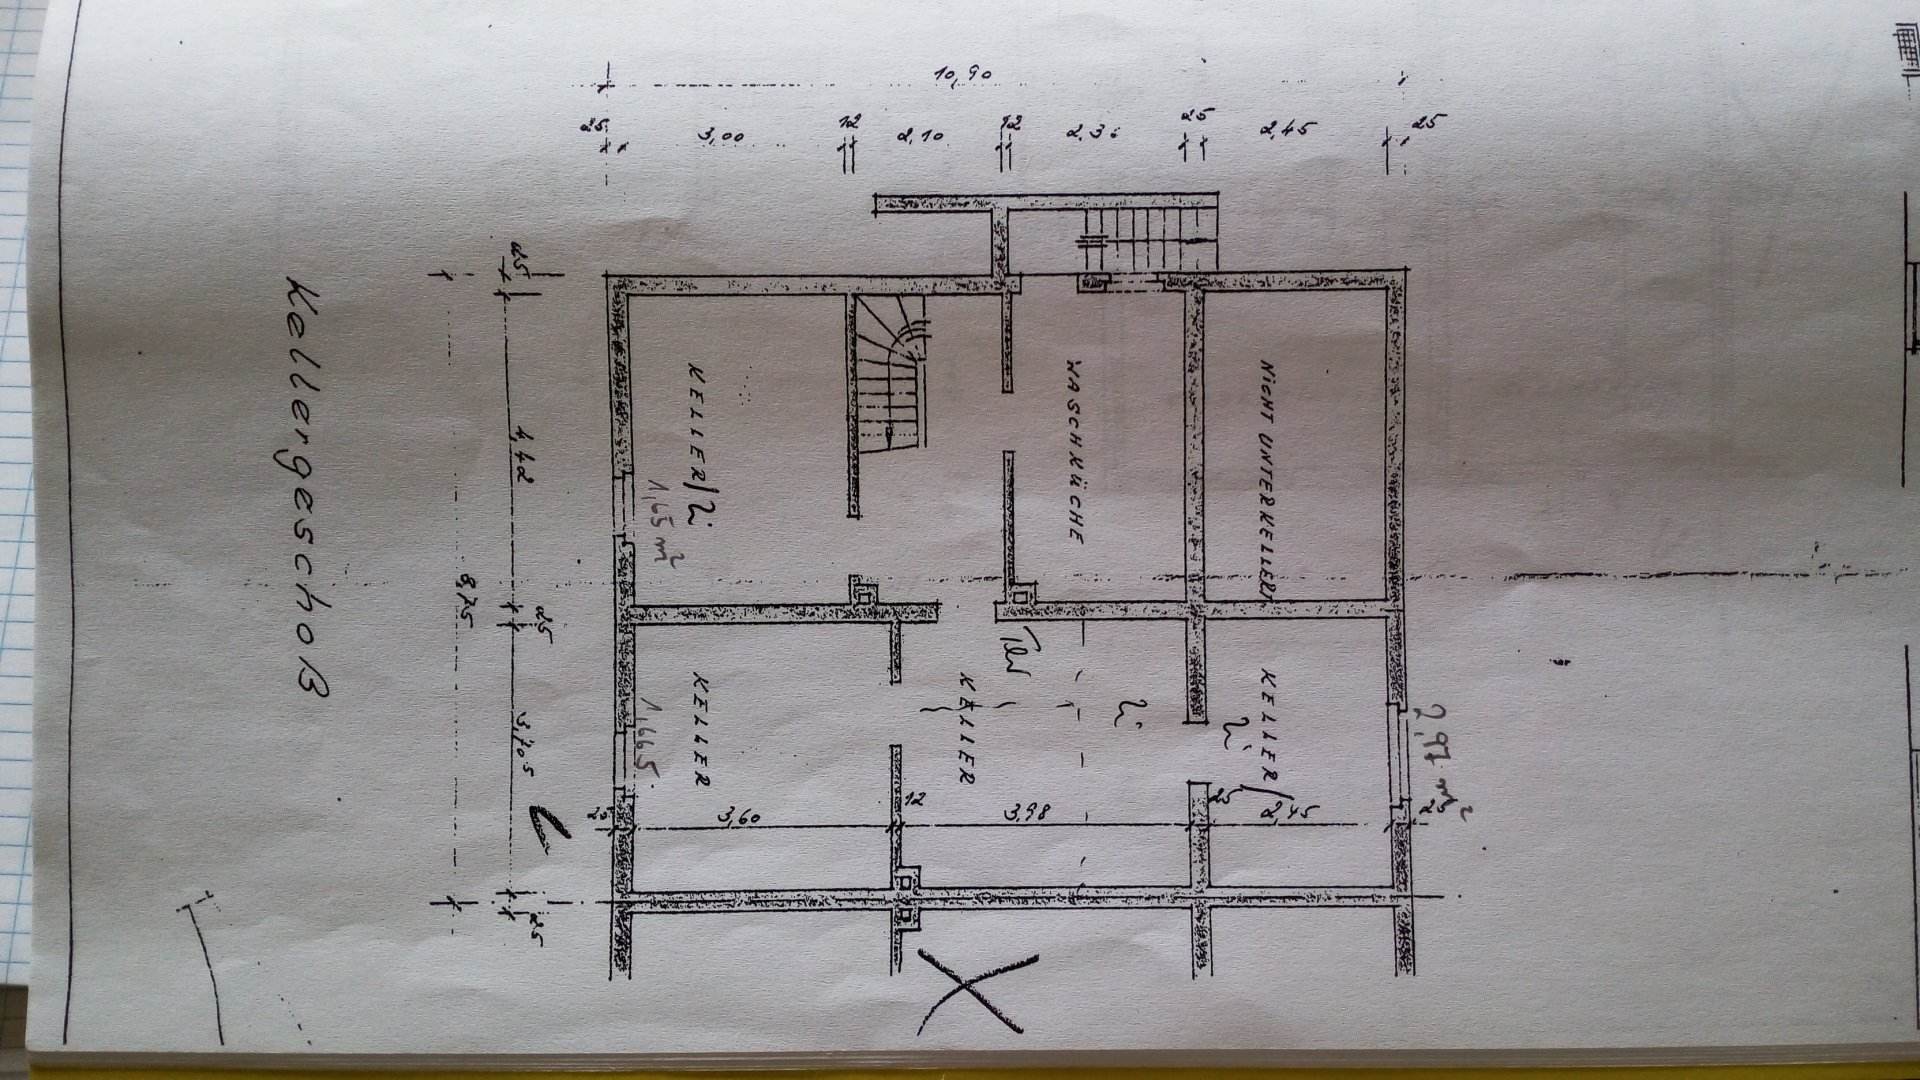 10,90
25
3,00
12
2,10
12
25
2,45
25
25
4,42
25
3,70 5
25
8,75
KELLER/Zi
1,65 m²
WASCHKÜCHE
NICHT UNTERKELLERT
KELLER
1,665
KELLER
Zi
KELLER
Zi
2,97 m²
25
3,60
12
3,98
25
2,45
25
Kellergeschoß